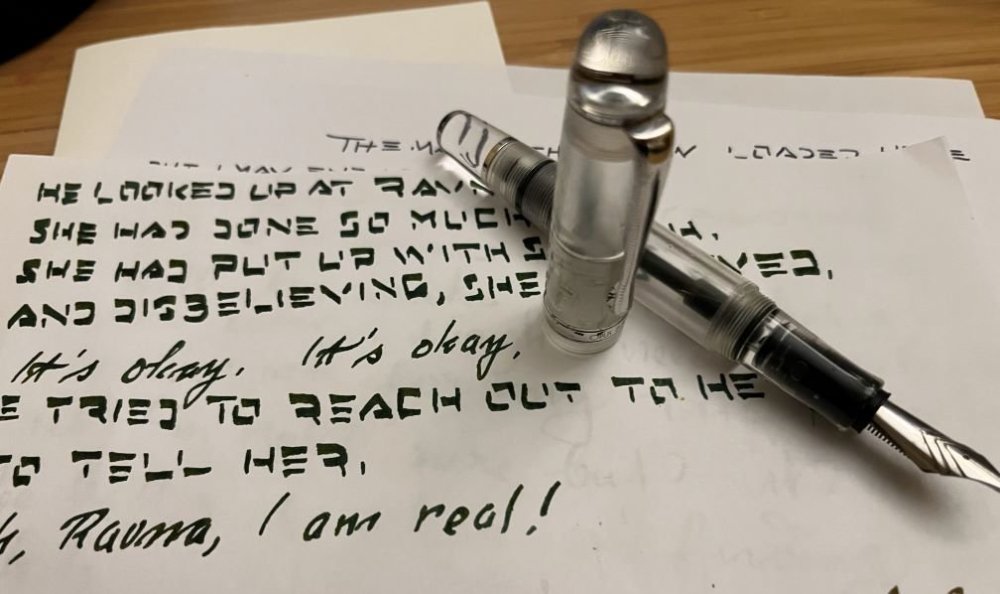 THE LOADED
BUT I MAY
HE LOOKED UP AT
SHE HAD DONE SO MUCH
SHE HAD PUT UP WITH
AND DISBELIEVING, SHE
It's okay. It's okay.
TRIED TO REACH OUT TO
TO TELL HER.
Ravna, I am real!